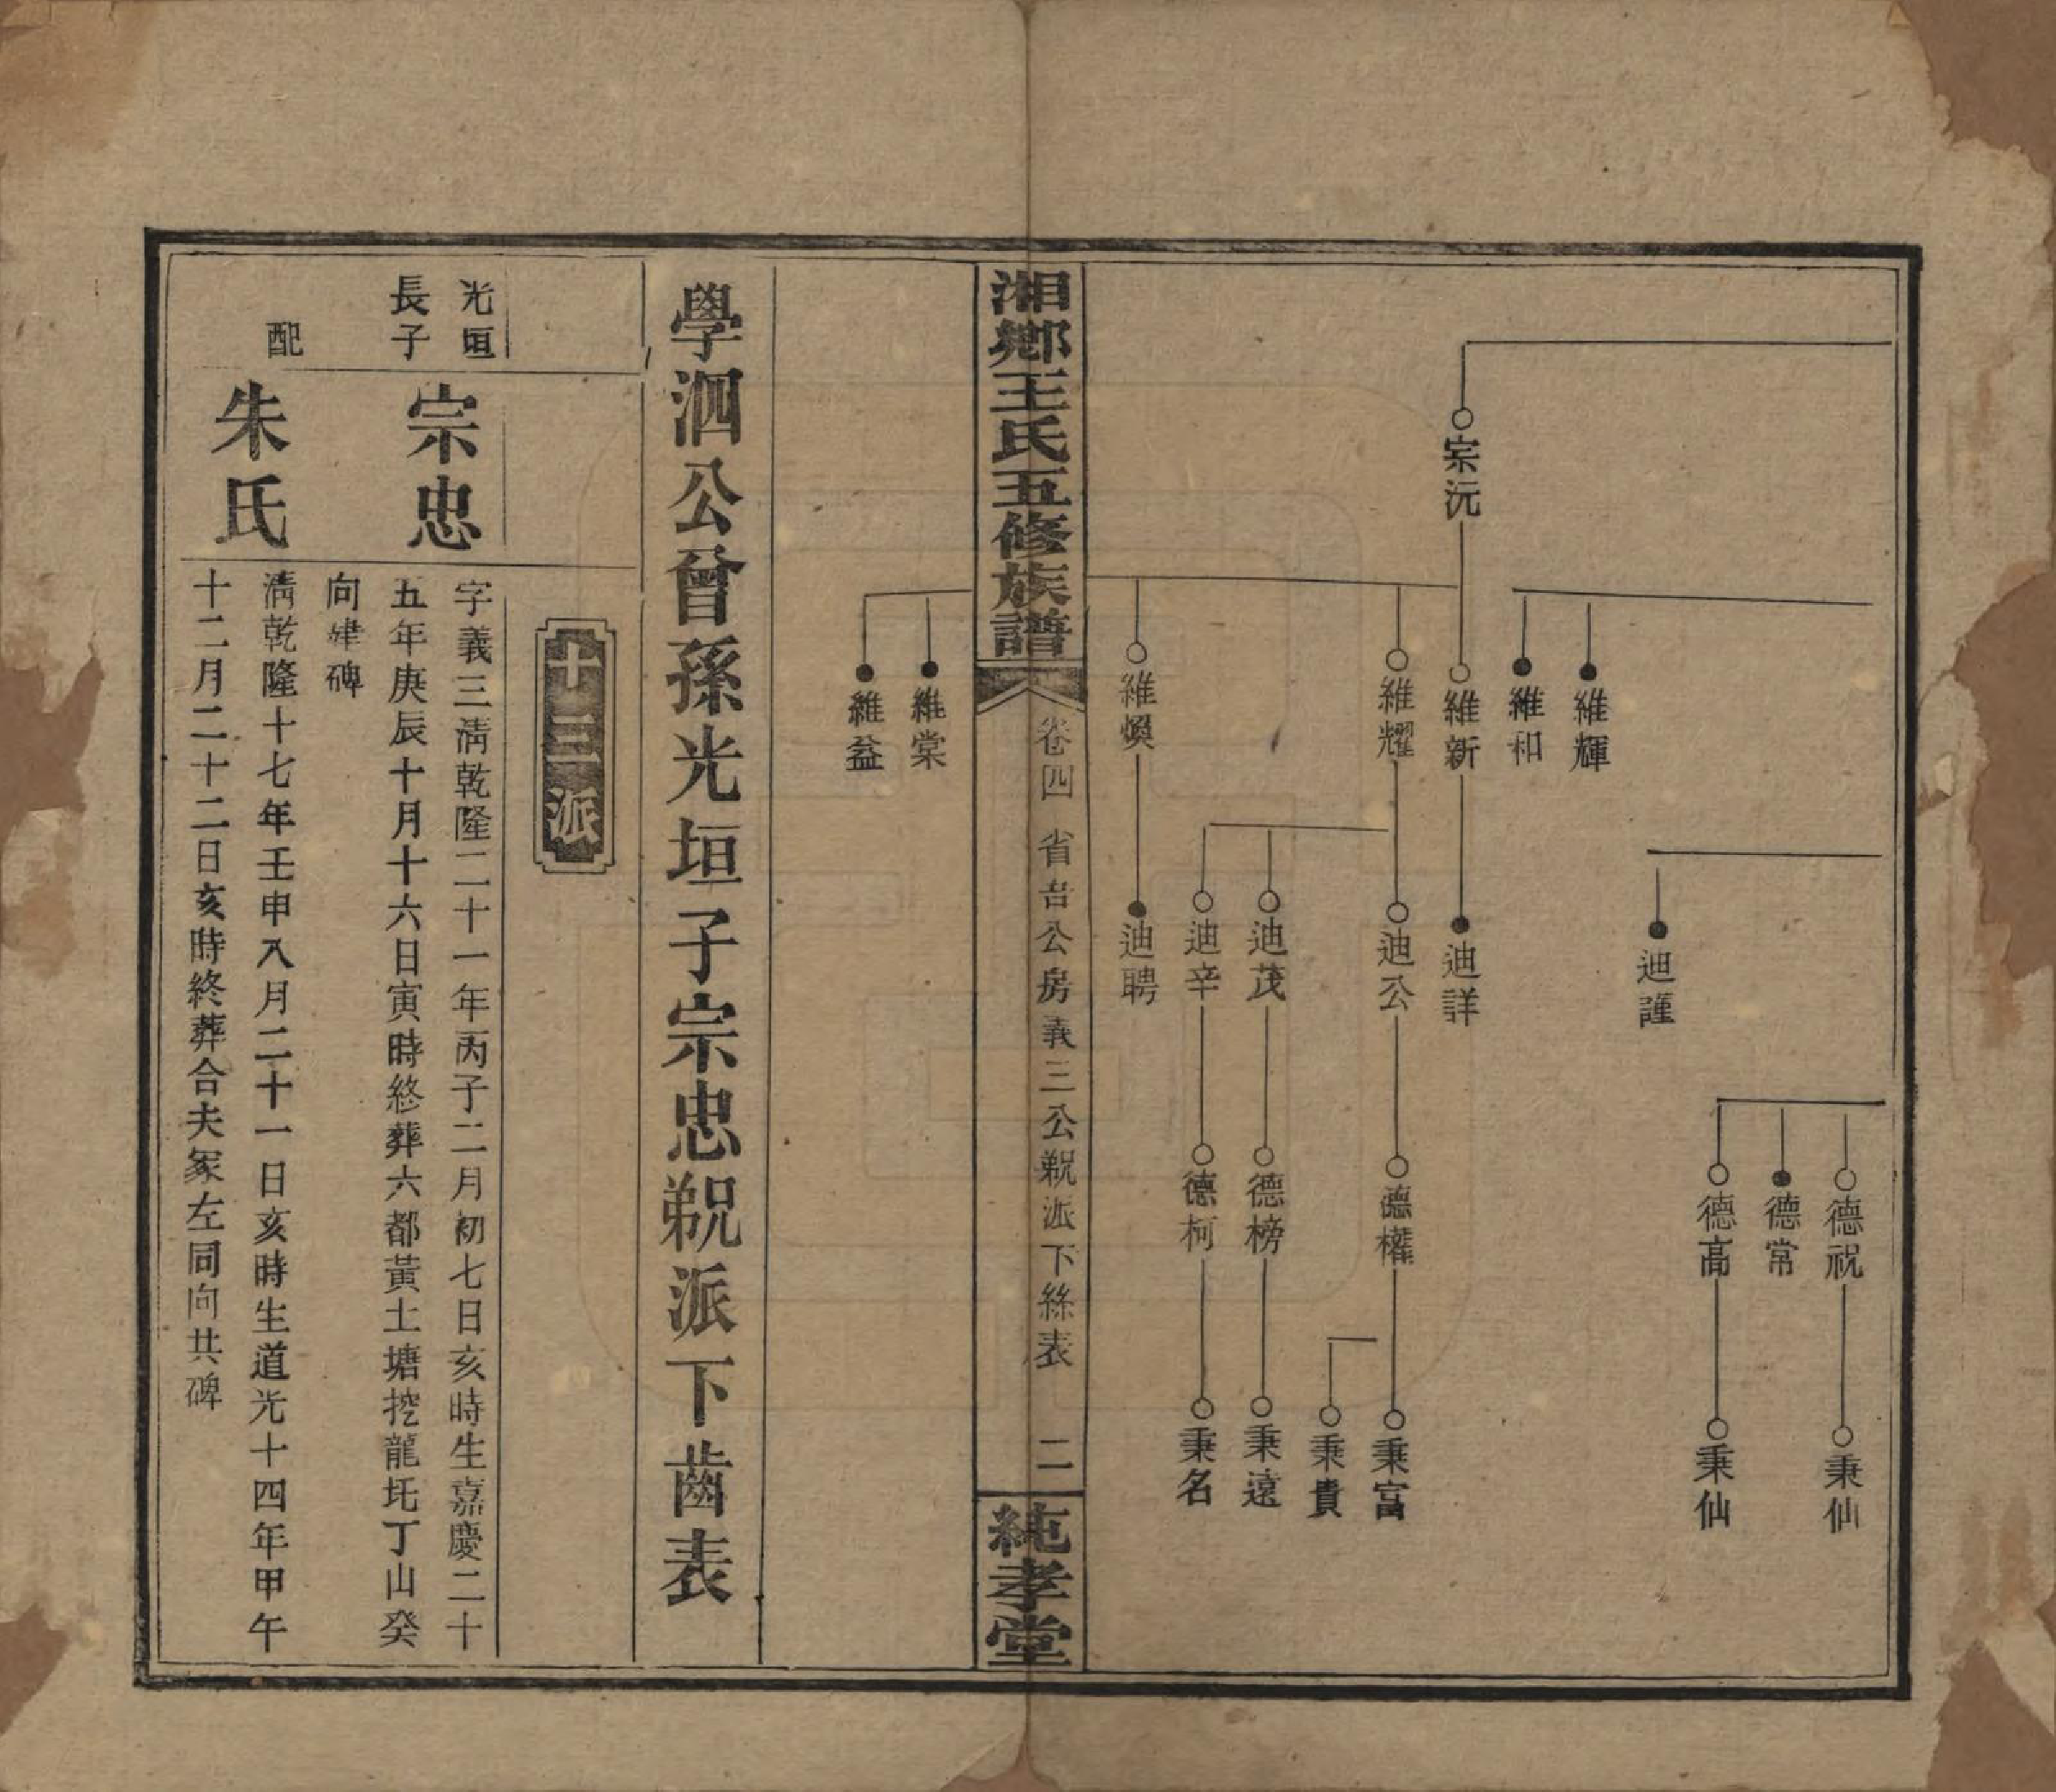 宗沅
維輝
維和
維新
維耀
維煥
迪謹
迪詳
迪公
迪茂
迪辛
迪聘
德祝
德常
德高
德權
德榜
德柯
秉仙
秉仙
秉富
秉貴
秉遠
秉名
湘鄉王氏五修族譜
卷四 省吾公房義三公鹣派下絲表 二
純孝堂
維棠
維益
學泗公曾孫光垣子宗忠派下齒表
十三派
光垣
長子
宗忠
字義三淸乾隆二十一年丙子二月初七日亥時生嘉慶二十
五年庚辰十月十六日寅時終葬六都黃土塘挖龍坵丁山癸
向建碑
配
朱氏
淸乾隆十七年壬申八月二十一日亥時生道光十四年甲午
十二月二十二日亥時終葬合夫冢左同向共碑